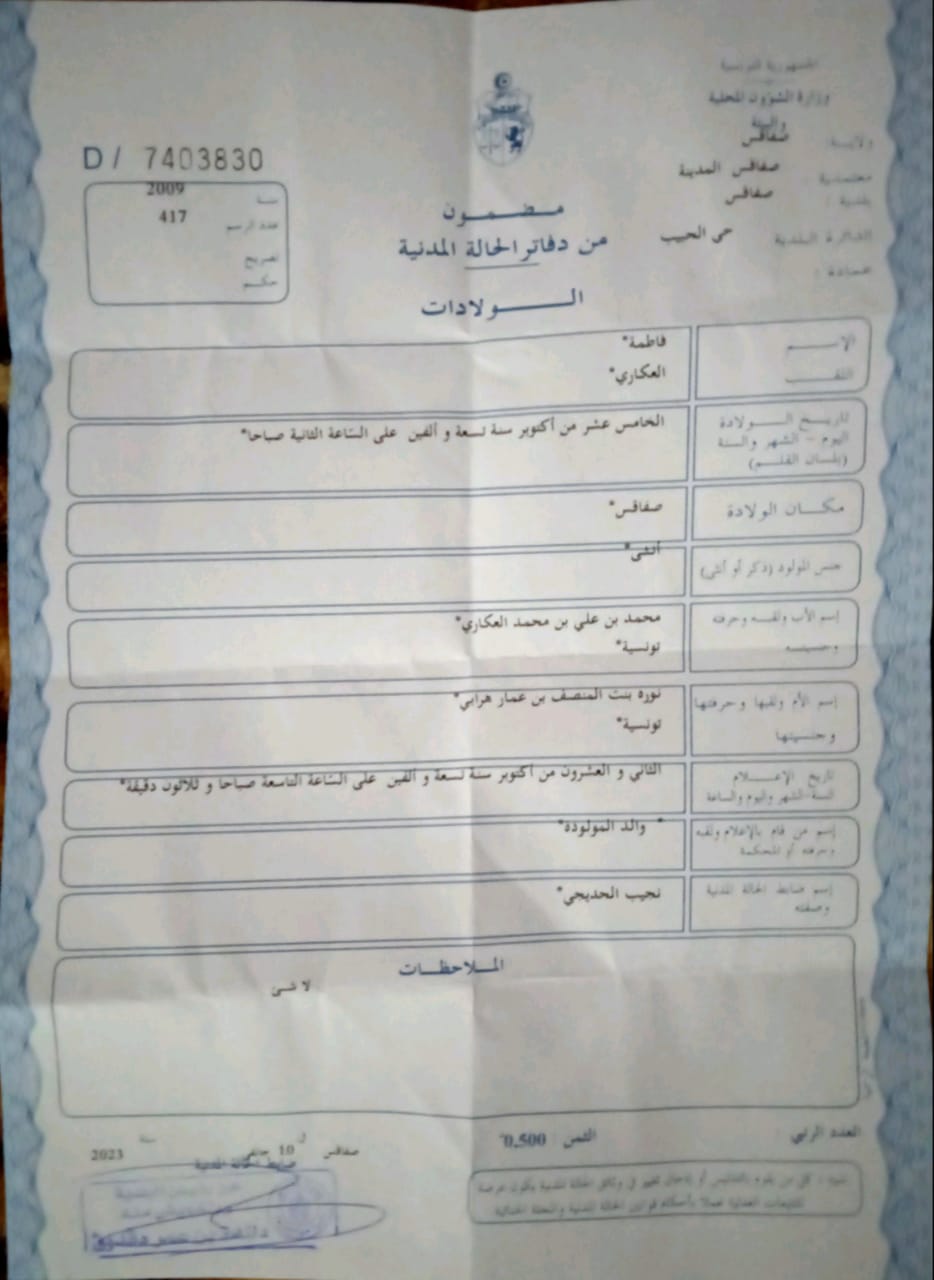 الجمهورية التونسية
وزارة الشؤون المحلية
والبيئة
ولاية: صفاقس
معتمدية: صفاقس المدينة
بلدية: صفاقس
الدائرة البلدية حي الحبيب
عمادة:
D/ 7403830
سنة 2009
عدد الرسم 417
تصريح
حكم
مضمون
من دفاتر الحالة المدنية
الولادات
الإسم فاطمة*
اللقب العكاري*
تاريخ الولادة
اليوم - الشهر والسنة
(بلسان القلم)
الخامس عشر من أكتوبر سنة تسعة و ألفين على السّاعة الثانية صباحا*
مكان الولادة صفاقس*
جنس المولود (ذكر أو أنثى) أنثى*
إسم الأب ولقبه وحرفته
وجنسيته
محمد بن علي بن محمد العكاري*
تونسية*
إسم الأم ولقبها وحرفتها
وجنسيتها
نورة بنت المنصف بن عمار هرابي*
تونسية*
تاريخ الإعلام
السنة-الشهر واليوم والساعة
الثاني و العشرون من أكتوبر سنة تسعة و ألفين على السّاعة التاسعة صباحا و ثلاثون دقيقة*
إسم من قام بالإعلام ولقبه
وحرفته أو المحكمة
* والد المولودة*
إسم ضابط الحالة المدنية
وصفته
نجيب الحديجي*
الملاحظات
لا شئ
العدد الرتبي:
الثمن: 0,500
صفاقس في 10 جانفي سنة 2023
ضابط الحالة المدنية
تنبيه: كل من يقوم بالتدليس أو إدخال تغيير في وثائق الحالة المدنية يكون عرضة
للتتبعات العدلية عملا بأحكام قوانين الحالة المدنية والمجلة الجنائية